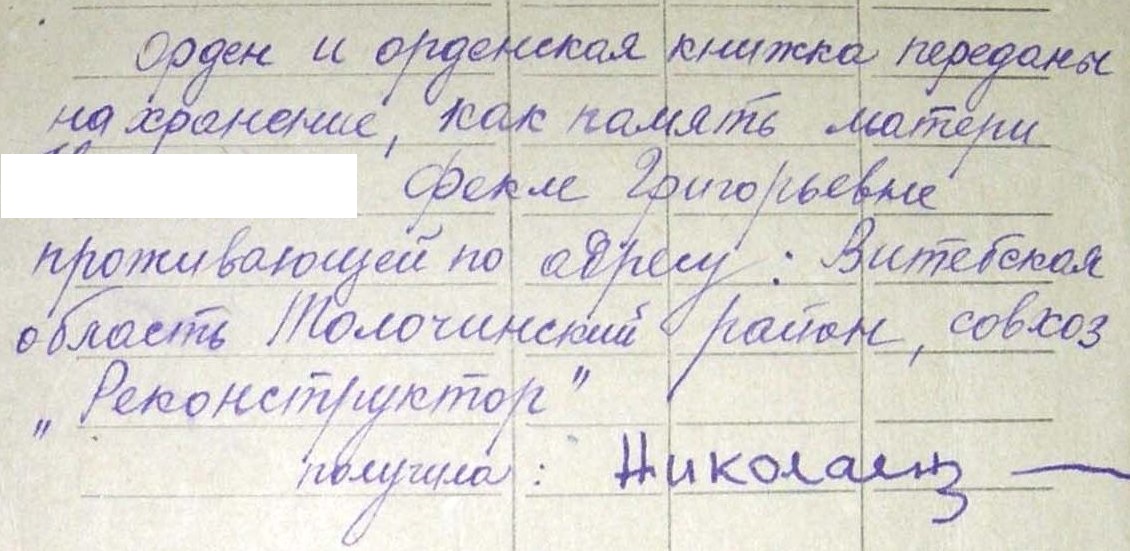 Орден и орденская книжка переданы
на хранение, как память матери
Фекле Григорьевне
проживающей по адресу: Витебская
область Толочинский район, совхоз
„Реконструктор"
получила: Николаец